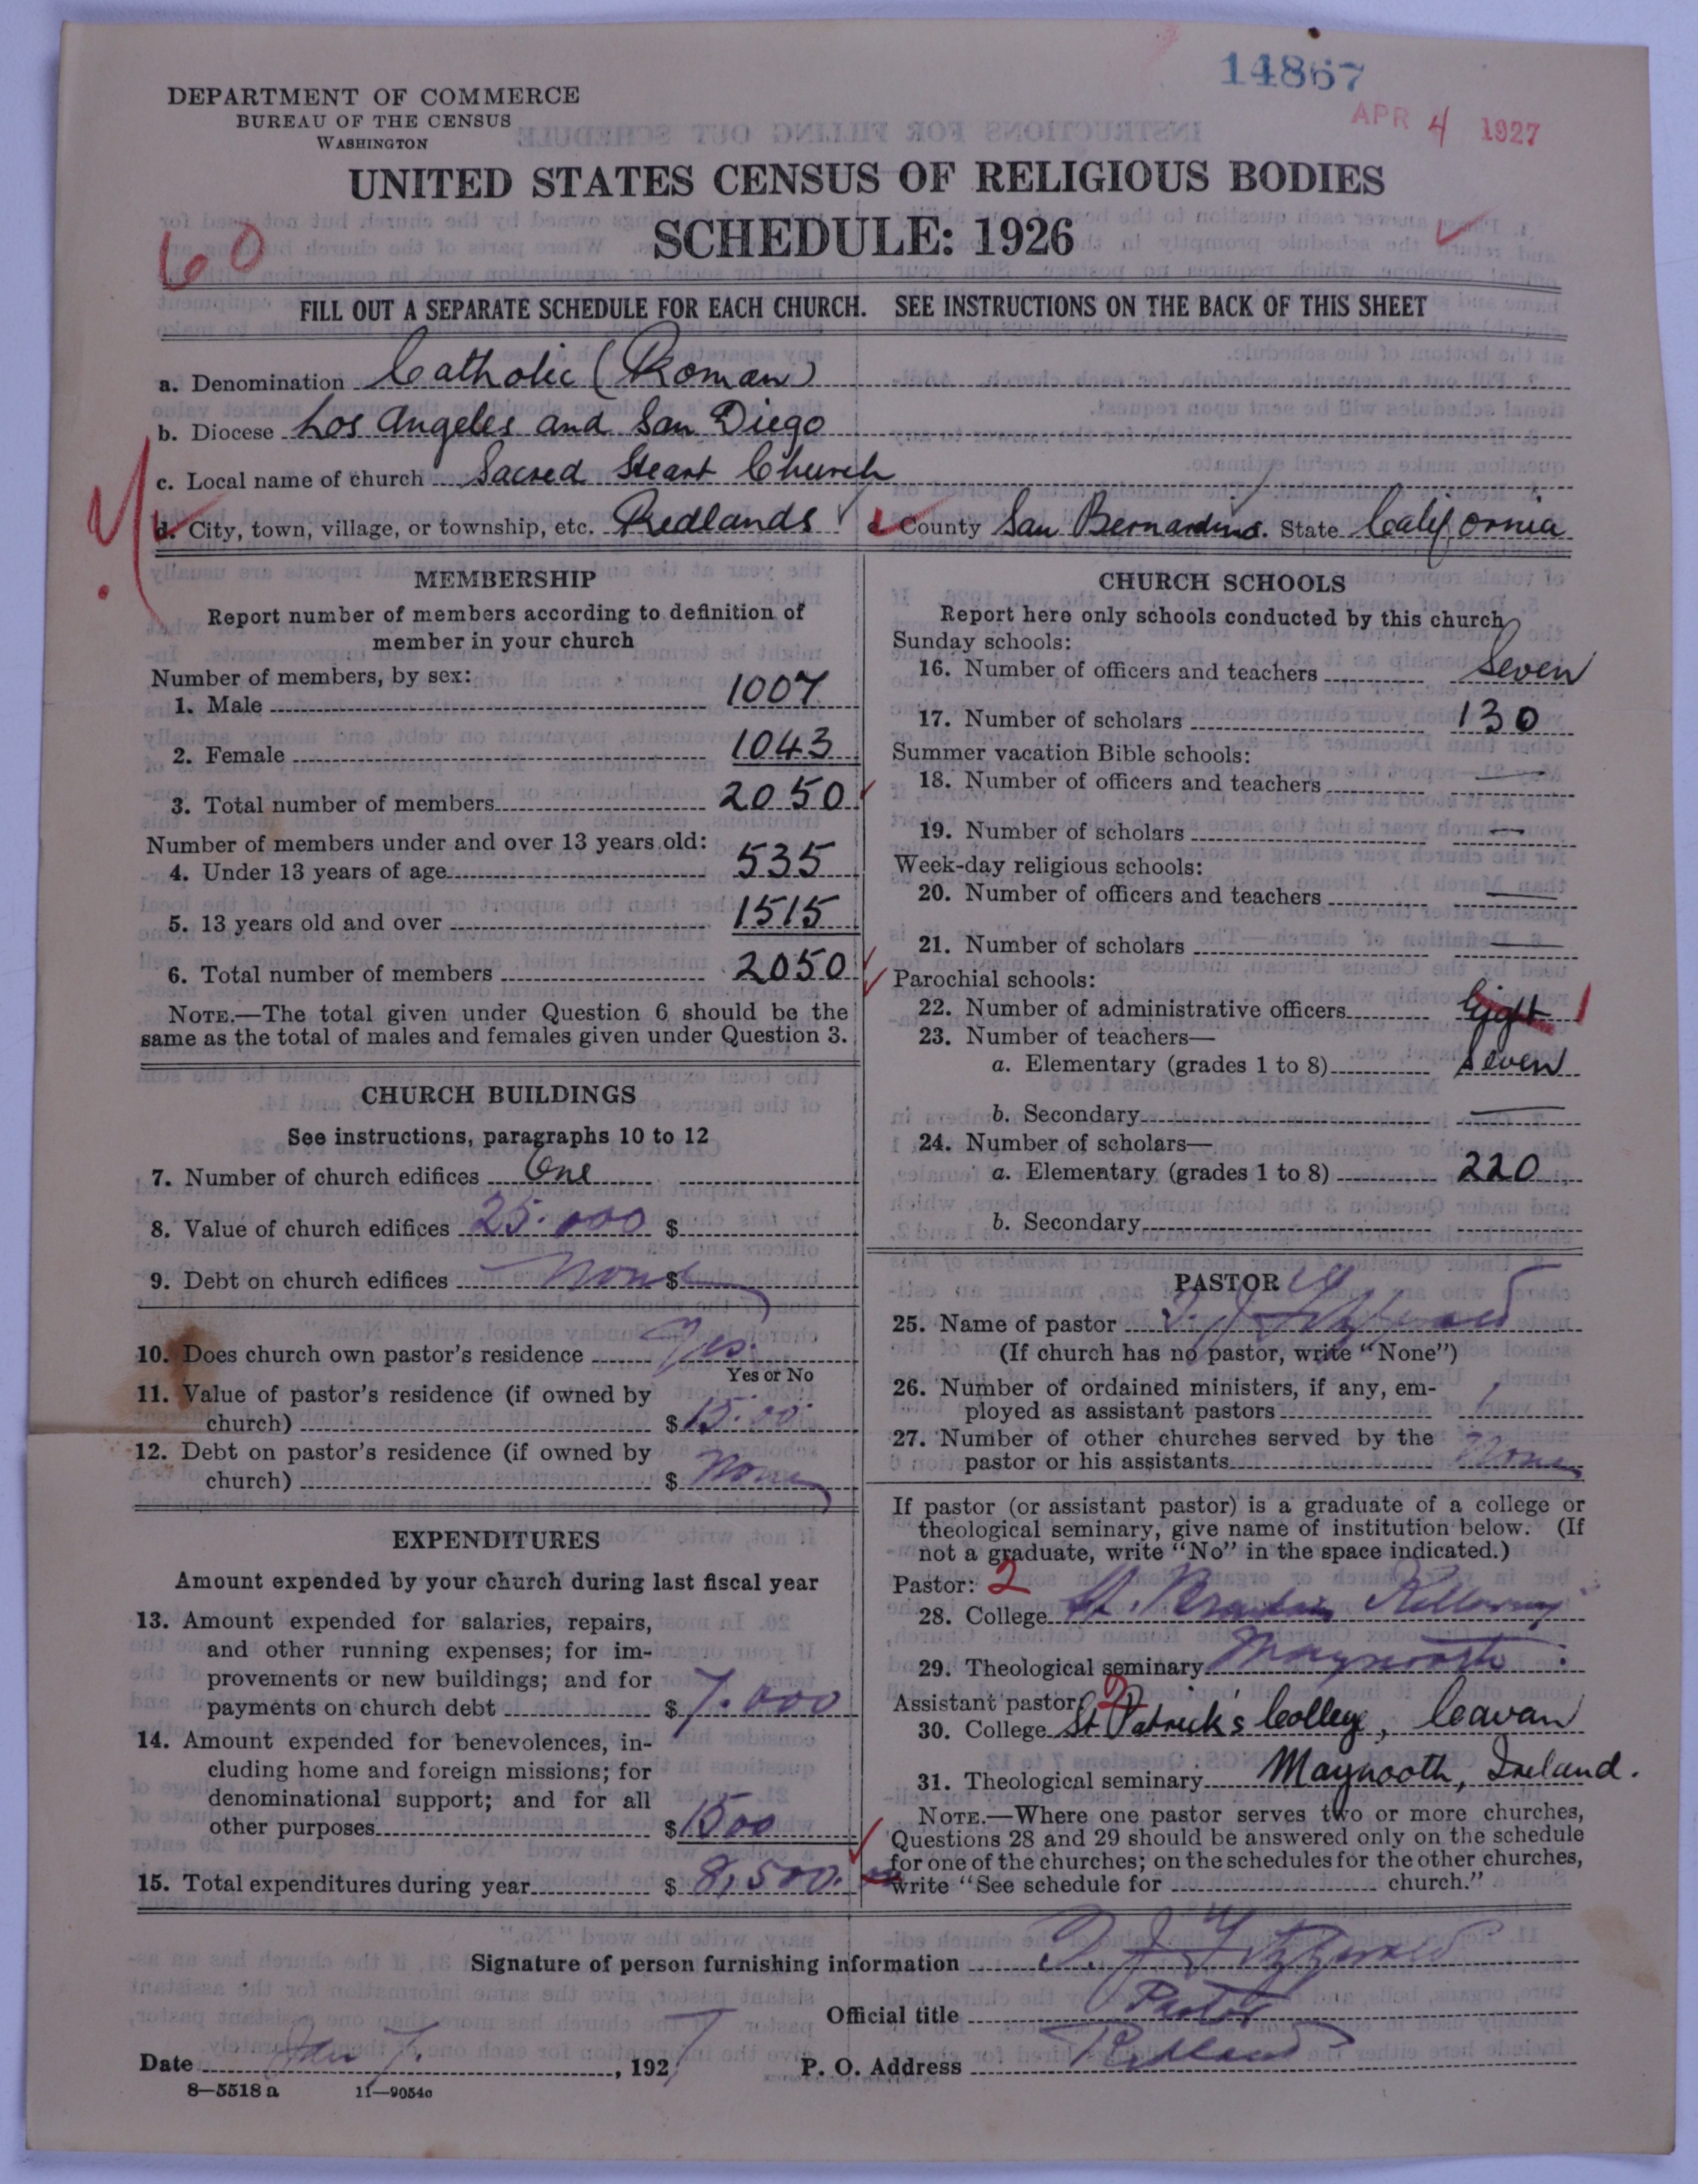 14867
APR 4 1927
DEPARTMENT OF COMMERCE
BUREAU OF THE CENSUS
WASHINGTON
UNITED STATES CENSUS OF RELIGIOUS BODIES
SCHEDULE: 1926
60
FILL OUT A SEPARATE SCHEDULE FOR EACH CHURCH. SEE INSTRUCTIONS ON THE BACK OF THIS SHEET
a. Denomination Catholic (Roman)
b. Diocese Los Angeles and San Diego
c. Local name of church Sacred Heart Church
d. City, town, village, or township, etc. Redlands County San Bernardino. State California
MEMBERSHIP
Report number of members according to definition of
member in your church
Number of members, by sex:
1. Male 1007
2. Female 1043
3. Total number of members 2050
Number of members under and over 13 years old:
4. Under 13 years of age 535
5. 13 years old and over 1515
6. Total number of members 2050
NOTE.—The total given under Question 6 should be the
same as the total of males and females given under Question 3.
CHURCH BUILDINGS
See instructions, paragraphs 10 to 12
7. Number of church edifices One
8. Value of church edifices 25.000 $
9. Debt on church edifices None $
10. Does church own pastor's residence Yes.
Yes or No
11. Value of pastor's residence (if owned by
church) $
12. Debt on pastor's residence (if owned by
church) $ None
EXPENDITURES
Amount expended by your church during last fiscal year
13. Amount expended for salaries, repairs,
and other running expenses; for im-
provements or new buildings; and for
payments on church debt $ 7.000
14. Amount expended for benevolences, in-
cluding home and foreign missions; for
denominational support; and for all
other purposes $ 1500
15. Total expenditures during year $ 8,500.
CHURCH SCHOOLS
Report here only schools conducted by this church
Sunday schools:
16. Number of officers and teachers Seven
17. Number of scholars 130
Summer vacation Bible schools:
18. Number of officers and teachers —
19. Number of scholars —
Week-day religious schools:
20. Number of officers and teachers —
21. Number of scholars —
Parochial schools:
22. Number of administrative officers Eight 1
23. Number of teachers—
a. Elementary (grades 1 to 8) Seven
b. Secondary —
24. Number of scholars—
a. Elementary (grades 1 to 8) 220
b. Secondary
PASTOR
25. Name of pastor T. J. Fitzgerald
(If church has no pastor, write "None")
26. Number of ordained ministers, if any, em-
ployed as assistant pastors 1
27. Number of other churches served by the
pastor or his assistants None
If pastor (or assistant pastor) is a graduate of a college or
theological seminary, give name of institution below. (If
not a graduate, write "No" in the space indicated.)
Pastor: 2
28. College St.
29. Theological seminary Maynooth
Assistant pastor: 2
30. College St Patrick's College, Cavan
31. Theological seminary Maynooth, Ireland.
NOTE.—Where one pastor serves two or more churches,
Questions 28 and 29 should be answered only on the schedule
for one of the churches; on the schedules for the other churches,
write "See schedule for church."
Signature of person furnishing information T. J. Fitzgerald
Official title Pastor
Date Jan 7., 1927 P. O. Address Redlands
8—5518 a 11—9054o